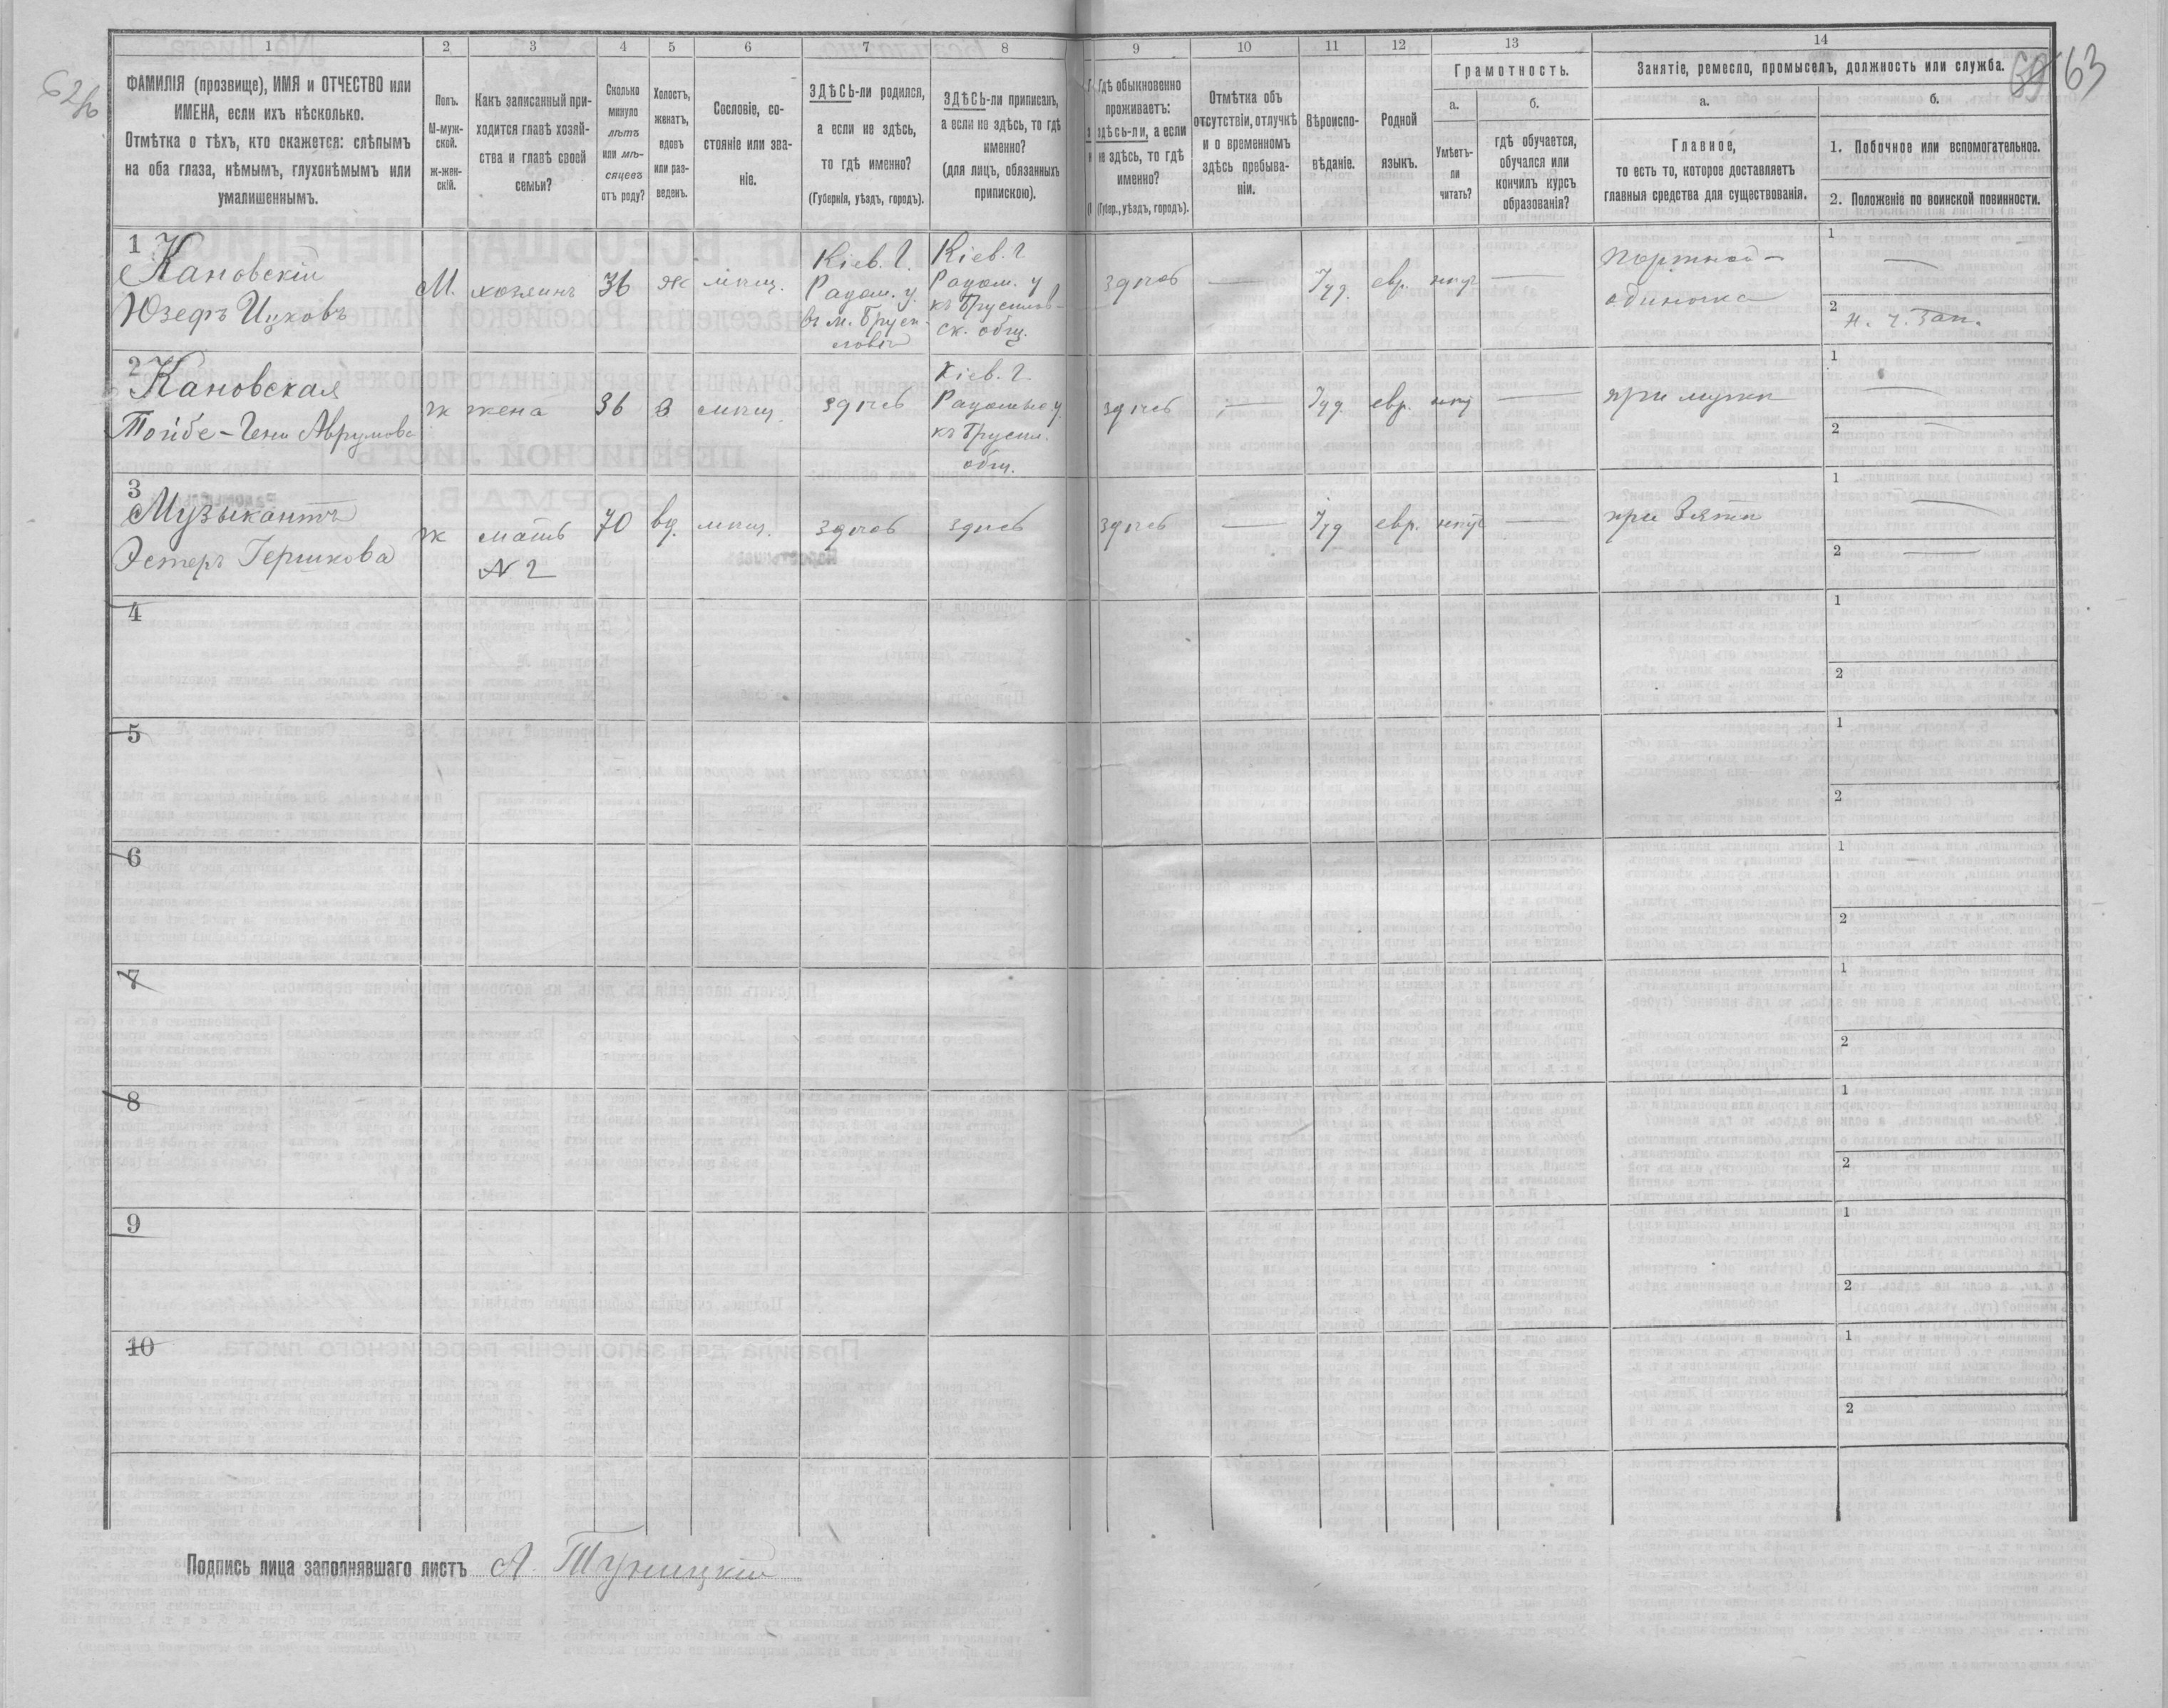 62об
69 63
1
2
3
4
5
6
7
8
9
10
11
12
13
14
ФАМИЛІЯ (прозвище), ИМЯ и ОТЧЕСТВО или
ИМЕНА, если ихъ нѣсколько.
Отмѣтка о тѣхъ, кто окажется: слѣпымъ
на оба глаза, нѣмымъ, глухонѣмымъ или
умалишеннымъ.
Полъ.
М-муж-
ской.
ж-жен-
скій.
Какъ записанный при-
ходится главѣ хозяй-
ства и главѣ своей
семьи?
Сколько
минуло
лѣтъ
или мѣ-
сяцевъ
отъ роду?
Холостъ,
женатъ,
вдовъ
или раз-
веденъ.
Сословіе, со-
стояніе или зва-
ніе.
ЗДѢСЬ-ли родился,
а если не здѣсь,
то гдѣ именно?
(Губернія, уѣздъ, городъ).
ЗДѢСЬ-ли приписанъ,
а если не здѣсь, то гдѣ
именно?
(для лицъ, обязанныхъ
припискою).
Гдѣ обыкновенно
проживаетъ:
здѣсь-ли, а если
не здѣсь, то гдѣ
именно?
(Губер., уѣздъ, городъ).
Отмѣтка объ
отсутствіи, отлучкѣ
и о временномъ
здѣсь пребыва-
ніи.
Вѣроиспо-
вѣданіе.
Родной
языкъ.
Грамотность.
а.
Умѣетъ-
ли
читать?
б.
гдѣ обучается,
обучался или
кончилъ курсъ
образованія?
Занятіе, ремесло, промыселъ, должность или служба.
а.
Главное,
то есть то, которое доставляетъ
главныя средства для существованія.
б.
1. Побочное или вспомогательное.
2. Положеніе по воинской повинности.
1
Кановскій
Юзефъ Ицковъ
М.
хозяинъ
36
ж
мѣщ.
Кіев. г.
Радом. у.
въ м. Бруси-
ловѣ
Кіев. г
Радом. у
къ Брусилов-
ск. общ.
здѣсь
—
Іуд.
евр.
нѣтъ
—
Портной-
одиночка
1
—
2
н. ч. зап.
2
Кановская
Тойбе-Гени Аврумова
ж
жена
36
з
мѣщ.
здѣсь
Кіев. г.
Радомыс. у
къ Брусил.
общ.
здѣсь
—
Іуд.
евр.
нѣт
—
при мужѣ
1
—
2
—
3
Музыкантъ
Эстеръ Гершкова
ж
мать
№ 2
70
вд.
мѣщ.
здѣсь
здѣсь
здѣсь
—
Іуд
евр.
нѣтъ
—
при зятѣ
1
—
2
—
4
1
2
5
1
2
6
1
2
7
1
2
8
1
2
9
1
2
10
1
2
Подпись лица заполнявшаго листъ А. Туницкій